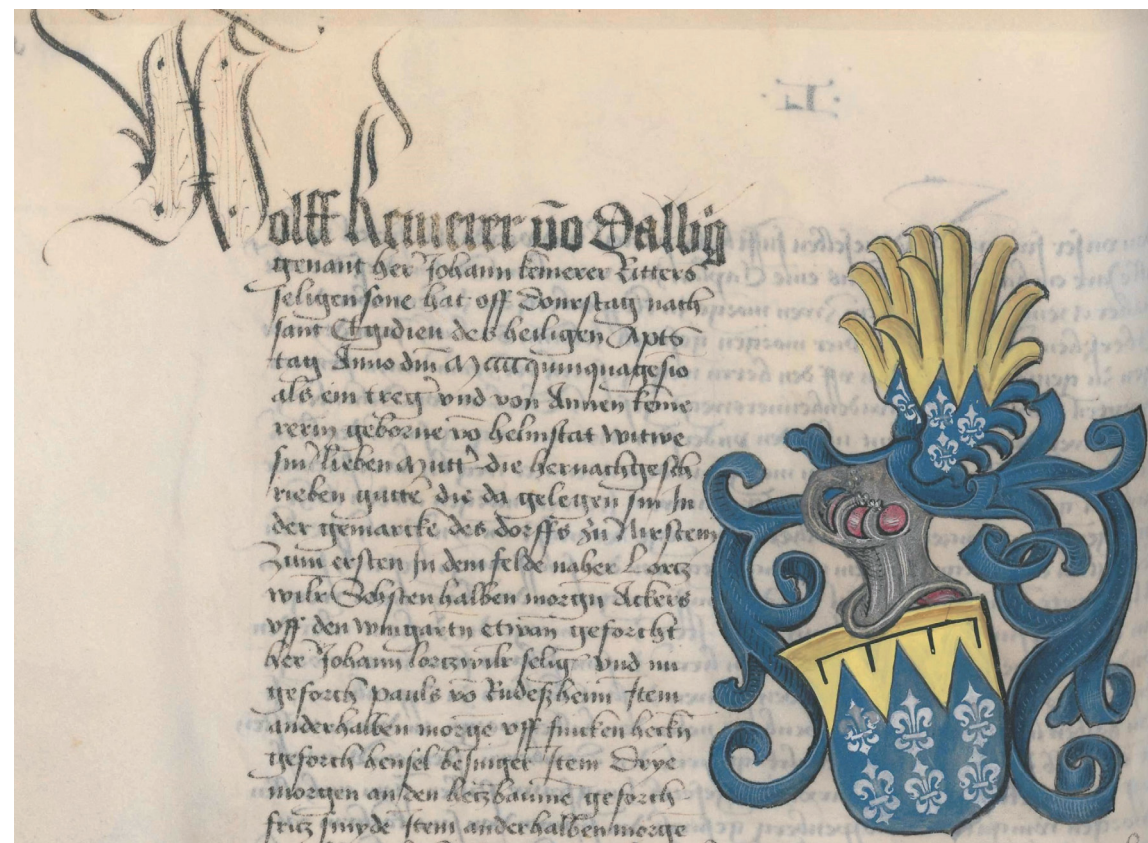 Wolff kemerer võ Dalbg̃
genant her Johann kemerer Ritters
seligen sone hat off Donrstag nach
sant Egidien des heiligen Apts
tag Anno dm̃ M cccc quinquagesio
als ein treg̾ vnd von Annen keme
rerin geborne võ helmstat witwe
sin̾ lieben Mutt̾ die hernachgesch
rieben gutte̾ die da gelegen sin In
der gemarcke des dorffs zu Nirstein
Zum ersten In dem felde naher Lortz
wilr Sehsten halben morgn̄ Ackers
vff den wingartn̄ etwan geforcht
her Johann lortzwilr selig vnd nu
geforch pauls võ Rudeßheim Item
anderhalben morge vff fincken heckn̄
geforch hensel besinger Item Drye
morgen an den betzbaume geforch
fritz smyde Item anderhalben morge